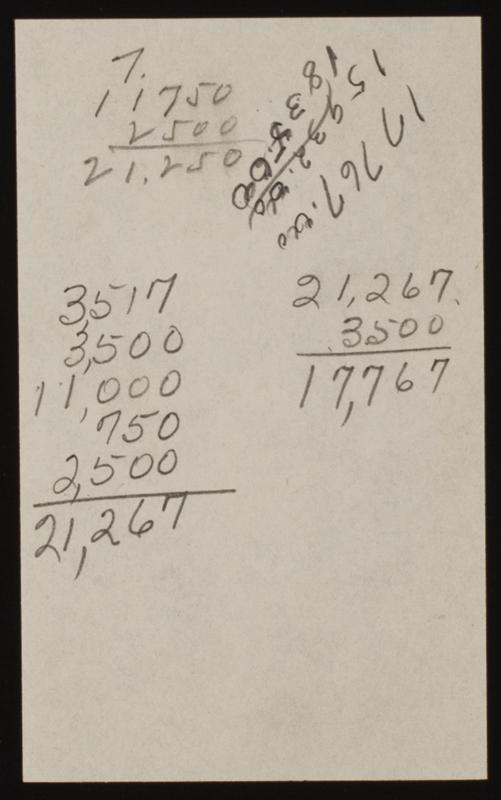 7.
11750
2500
21.250
15 932.00
1 835.00
17 767.00
3,517
3,500
11,000
750
2,500
21,267
21,267.
3500
17,767